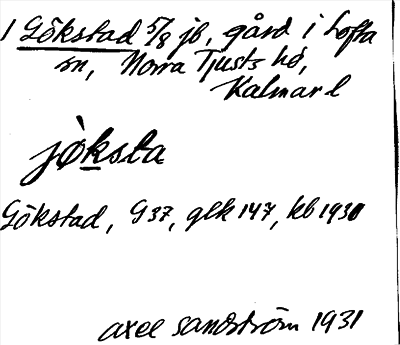 1 Gökstad 5/8 jb, gård i Lofta
sn, Norra Tjusts hd,
Kalmar l
jö̀ksta
Gökstad, G 37, glk 147, kb 1930
Axel Sandström 1931